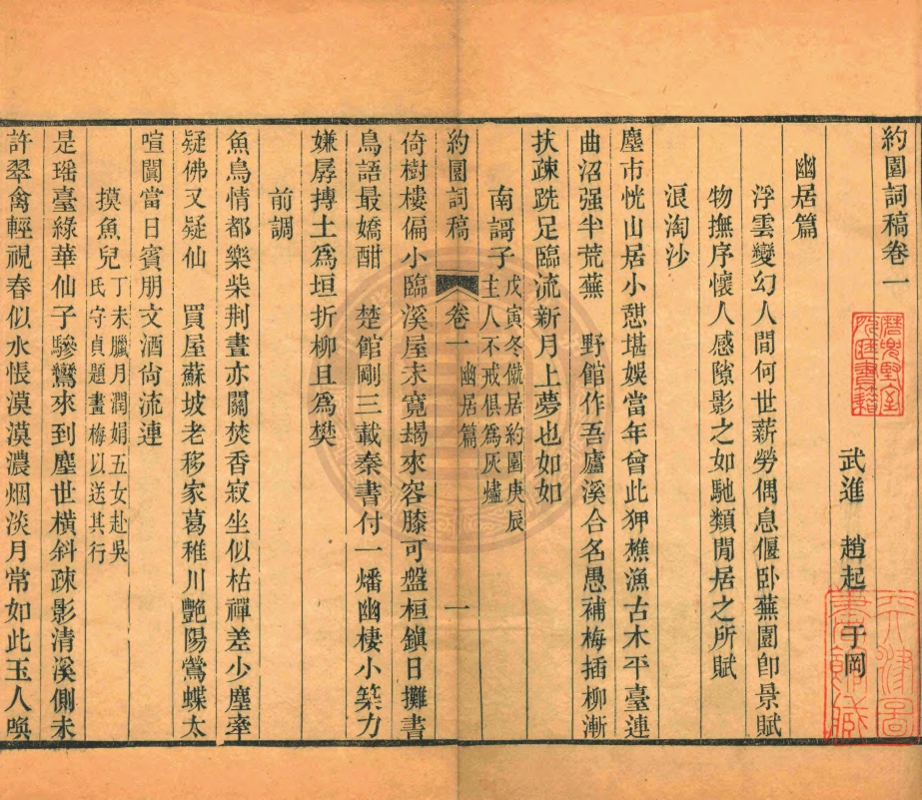 約園詞稿卷一
武進　趙起　于岡
幽居篇
浮雲變幻人間何世薪勞偶息偃卧蕪園卽景賦
物撫序懷人感隙影之如馳類閒居之所賦
浪淘沙
塵市恍山居小憩堪娛當年曾此狎樵漁古木平臺連
曲沼强半荒蕪　野館作吾廬溪合名愚補梅插柳漸
扶疎跣足臨流新月上夢也如如
南謌子戊寅冬僦居約園庚辰
主人不戒俱爲灰燼
約園詞稿　卷一　幽居篇　一
倚樹樓偏小臨溪屋未寬朅來容膝可盤桓鎭日攤書
鳥語最嬌酣　楚館剛三載秦書付一燔幽棲小築力
嫌孱摶土爲垣折柳且爲樊
前調
魚鳥情都樂柴荆晝亦關焚香寂坐似枯禪差少塵牽
疑佛又疑仙　買屋蘇坡老移家葛稚川艷陽鶯蝶太
喧闐當日賓朋文酒尙流連
摸魚兒丁未臘月潤娟五女赴吳
氏守貞題畫梅以送其行
是瑶臺綠華仙子驂鸞來到塵世横斜疎影清溪側未
許翠禽輕視春似水悵漠漠濃烟淡月常如此玉人喚